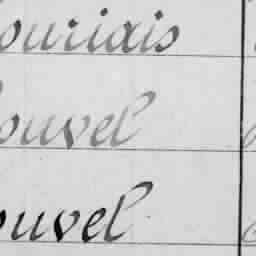 ouriais
ouvel
ouvel